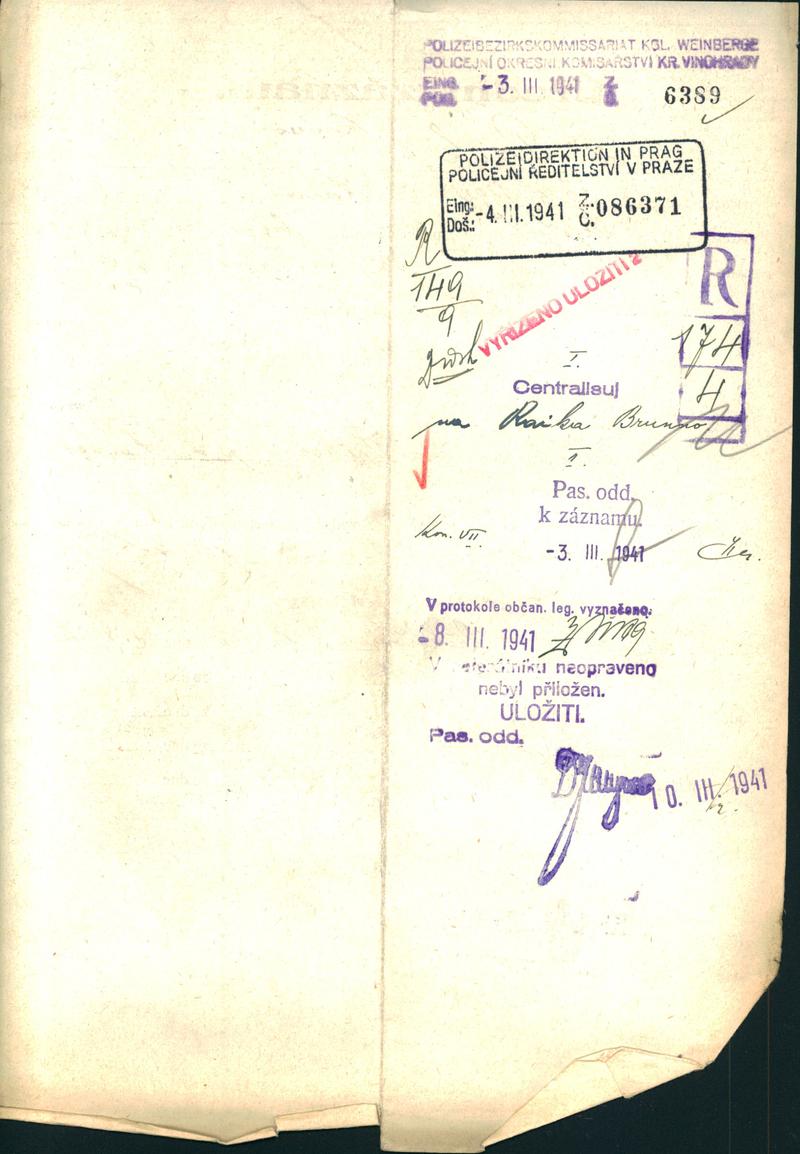 POLIZEIBEZIRKSKOMMISSARIAT KGL. WEINBERGE
POLICEJNÍ OKRESNÍ KOMISARSTVÍ KR. VINOHRADY
EING. -3. III. 1941 Z 6389
POLIZEIDIREKTION IN PRAG
POLICEJNÍ ŘEDITELSTVÍ V PRAZE
Eing.: -4. III. 1941 Z. 086371
Doš.: Č.
R
149
9
R
174
4
VYŘÍZENO ULOŽITI 2
I.
Centralisuj
na Raika Brunno
I.
Pas. odd.
k záznamu.
Kon. VII.
-3. III. 1941
V protokole občan. leg. vyznačeno.
-8. III. 1941
neopraveno
nebyl přiložen.
ULOŽITI.
Pas. odd.
10. III. 1941